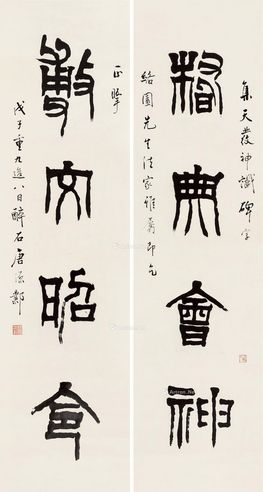 集天發神讖碑字
典會神
園先生法家雅屬即乞
正擘
敷文昭
戊子重九八日醉石唐源鄴